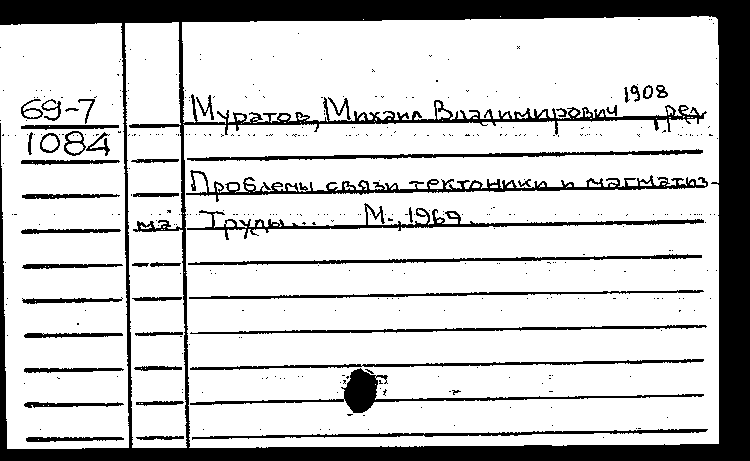 69-7
1084
Муратов, Михаил Владимирович 1908
, ред.
Проблемы связи тектоники и магматиз-
ма. Труды... М., 1969.